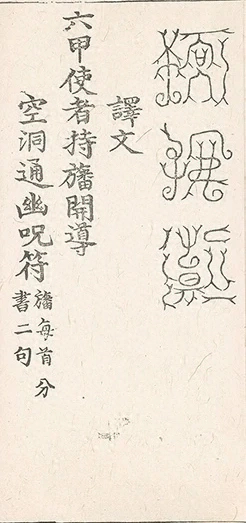 譯文
六甲使者持旛開導
空洞通幽呪符旛每首分
書二句